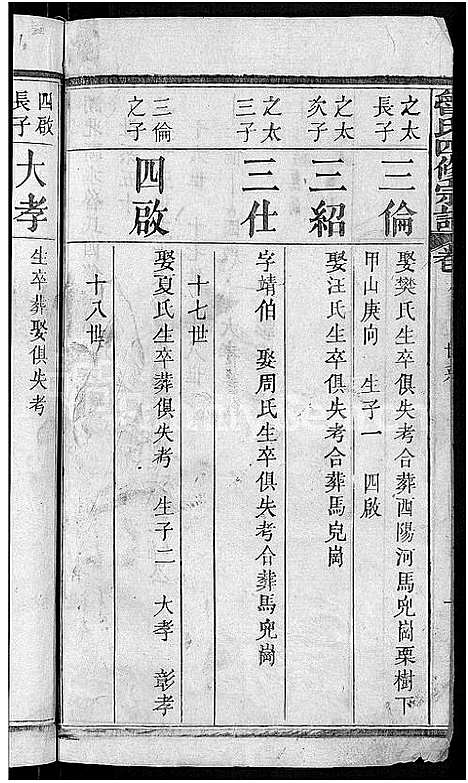 曾氏四修宗譜 卷
之太長子 三倫 娶樊氏生卒俱失考合葬酉陽河馬兜崗栗樹下
甲山庚向 生子一 四啟
之太次子 三紹 娶汪氏生卒俱失考合葬馬兜崗
之太三子 三仕 字靖伯 娶周氏生卒俱失考合葬馬兜崗
十七世
三倫之子 四啟 娶夏氏生卒葬俱失考 生子二 大孝 彰孝
十八世
四啟長子 大孝 生卒葬娶俱失考